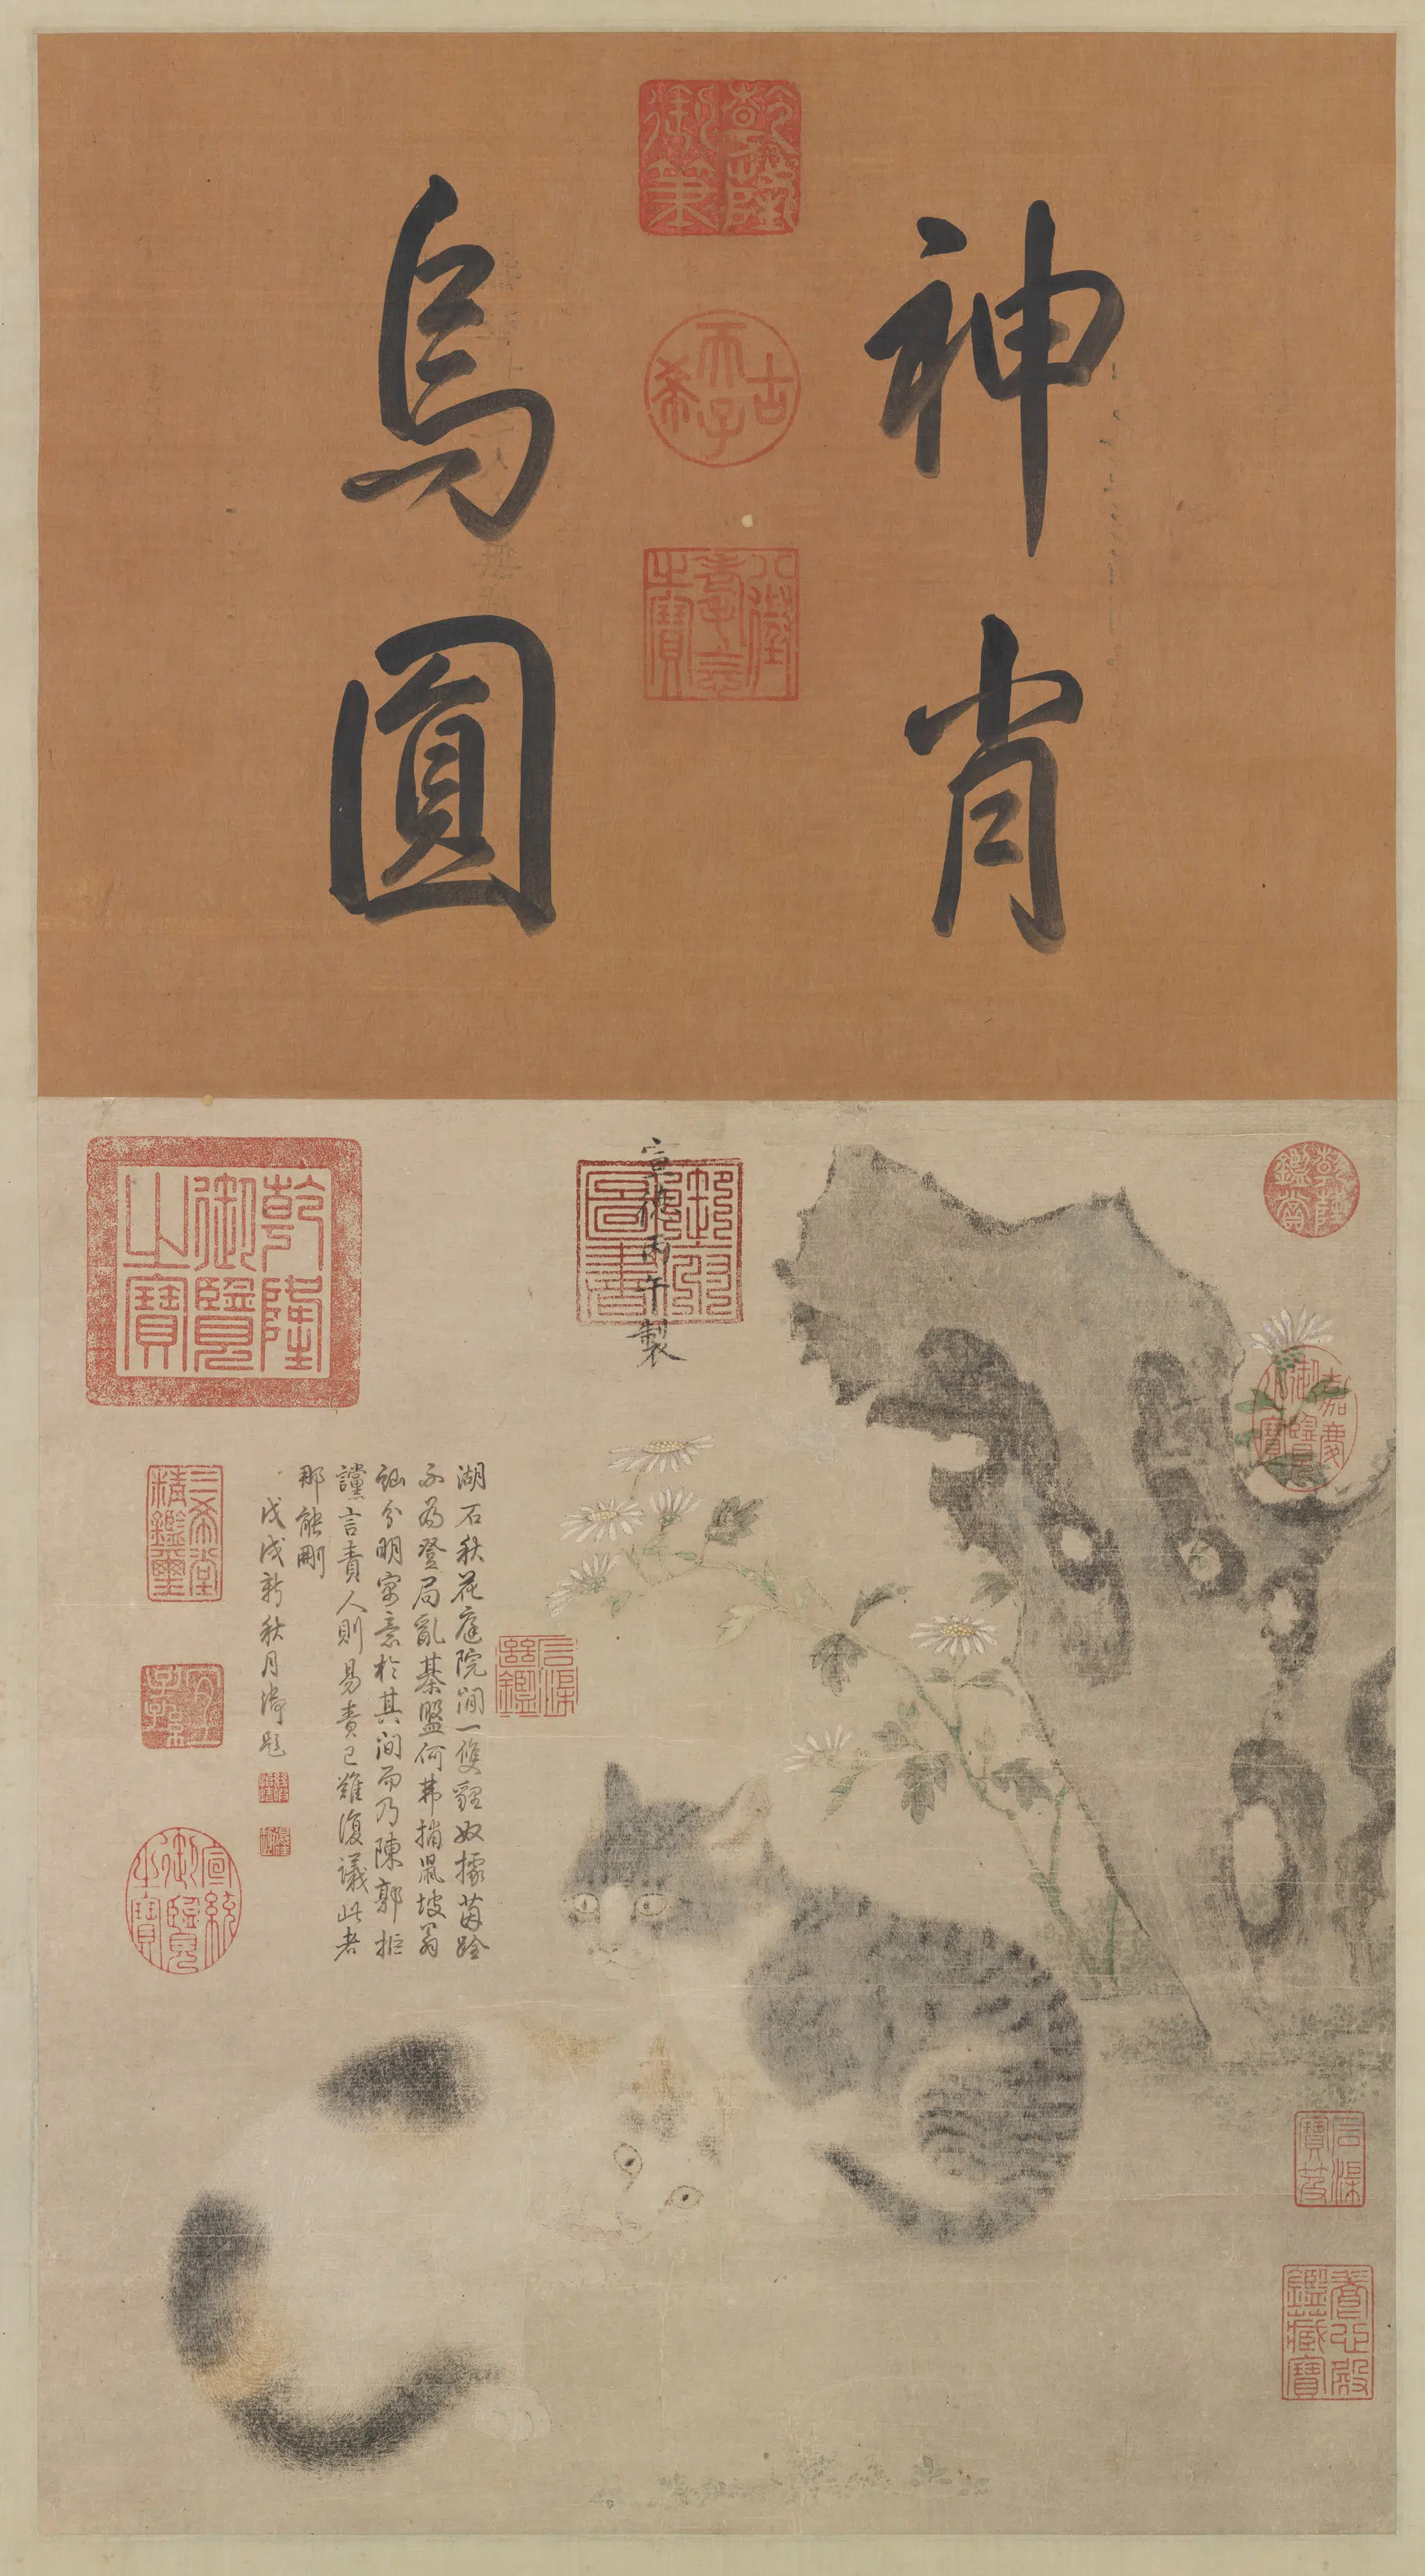 神肖
烏圓
乾隆御筆
古希天子
八徵耄念之寶
乾隆鑑賞
嘉慶御覽之寶
宣德丙午製
乾隆御覽之寶
湖石秋花庭院間一雙貍奴據茵跧
不為登局亂棊盤何弗捕鼠坡翁
訕分明寓意於其間而乃陳郭拒
讜言責人則易責己難復議此者
那能刪
戊戌新秋月御題
三希堂精鑑璽
宜子孫
宣統御覽之寶
石渠定鑑
石渠寶笈
養心殿鑑藏寶